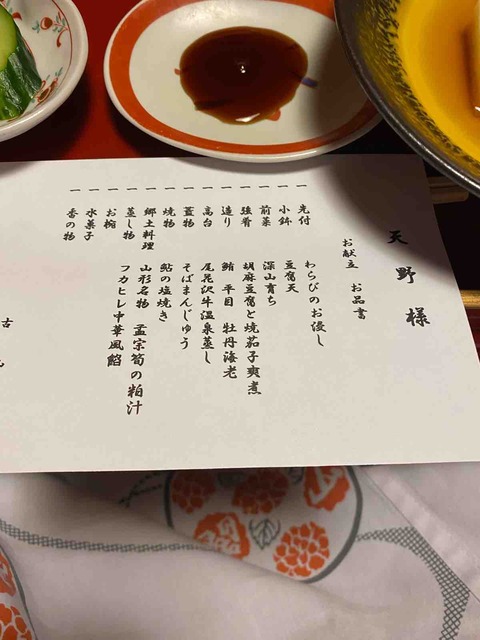 天野様
お献立 お品書
一 先付 わらびのお浸し
一 小鉢 豆腐天
一 前菜 深山育ち
一 強肴 胡麻豆腐と焼茄子爽煮
一 造り 鮪 平目 牡丹海老
一 高台 尾花沢牛温泉蒸し
一 蓋物 そばまんじゅう
一 焼物 鮎の塩焼き
一 郷土料理 山形名物 孟宗筍の粕汁
一 蒸し物 フカヒレ中華風餡
一 お椀
一 水菓子
一 香の物
古